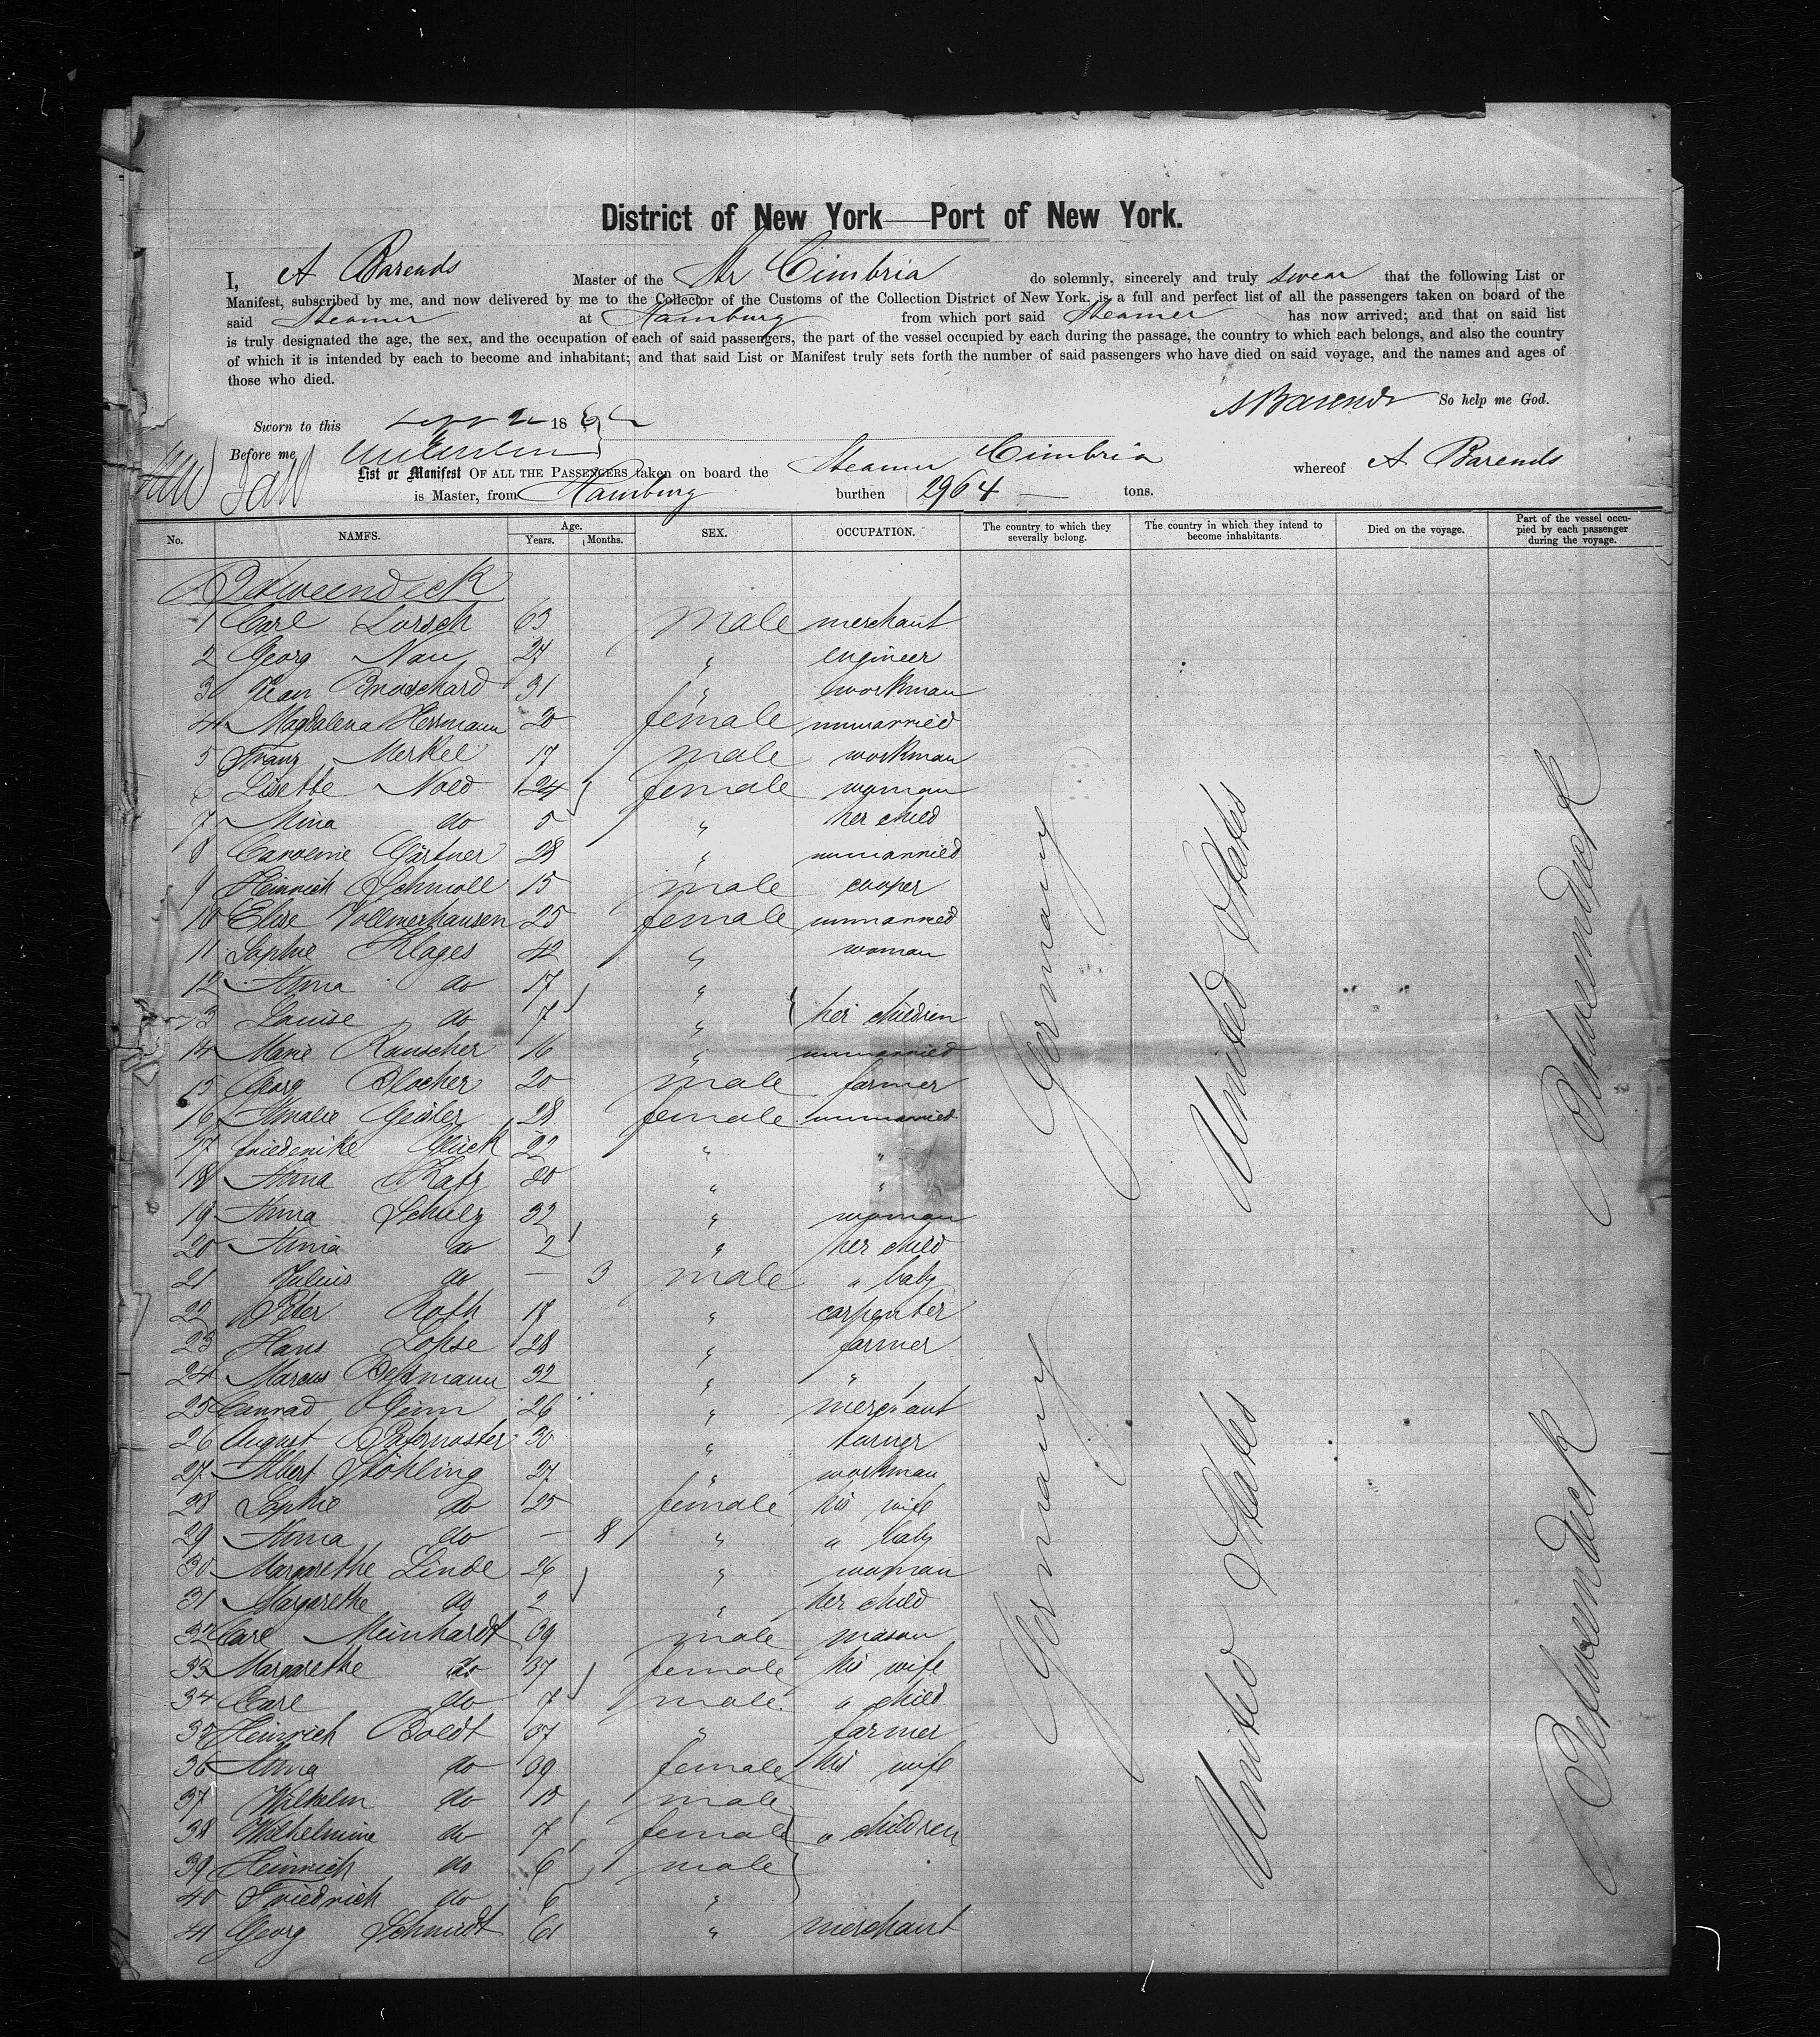 District of New York—Port of New York.
I, A Barends Master of the Str Cimbria do solemnly, sincerely and truly swear that the following List or
Manifest, subscribed by me, and now delivered by me to the Collector of the Customs of the Collection District of New York, is a full and perfect list of all the passengers taken on board of the
said Steamer at Hamburg from which port said Steamer has now arrived; and that on said list
is truly designated the age, the sex, and the occupation of each of said passengers, the part of the vessel occupied by each during the passage, the country to which each belongs, and also the country
of which it is intended by each to become and inhabitant; and that said List or Manifest truly sets forth the number of said passengers who have died on said voyage, and the names and ages of
those who died.
A Barends So help me God.
Sworn to this 18
Before me
List or Manifest OF ALL THE PASSENGERS taken on board the Steamer Cimbria whereof A Barends
is Master, from Hamburg burthen 2964 tons.
No. NAMES. Age. Years. Months. SEX. OCCUPATION. The country to which they severally belong. The country in which they intend to become inhabitants. Died on the voyage. Part of the vessel occupied by each passenger during the voyage.
Betweendeck
1 Carl Lorsch 63 male merchant
2 Georg Nau 27 " engineer
3 Jean 31 " workman
4 Magdalena Herrmann 20 female unmarried
5 Franz Merkel 17 male workman
6 Lisette Nold 24 female woman
7 Mina do 5 " her child
8 Caroline Gärtner 28 " unmarried
9 Heinrich Schmoll 15 male cooper
10 Elise Vollmerhausen 25 female unmarried
11 Sophie Klages 42 " woman
12 Anna do 17 "
13 Louise do 7 " her children
14 Marie Rauscher 16 " unmarried
15 Georg Blocher 20 male farmer
16 Amalie Geisler 28 female unmarried
17 Friederike Glück 22 " "
18 Anna Katz 20 " "
19 Anna Schulz 32 " woman
20 Anna do 2 " her child
21 Julius do — 3 male " baby
22 Peter Roth 17 " carpenter
23 Hans Lohse 28 " farmer
24 Marcus 32 " "
25 Conrad 26 " merchant
26 August Paternoster 30 " turner
27 Albert Stöhling 27 " workman
28 Sophie do 25 female his wife
29 Anna do — 8 " " baby
30 Margarethe Linde 26 " woman
31 Margarethe do 2 " her child
32 Carl Meinhardt 39 male mason
33 Margarethe do 37 female his wife
34 Carl do 7 male " child
35 Heinrich Boldt 37 " farmer
36 Anna do 39 female his wife
37 Wilhelm do male
38 Wilhelmine do 7 female " children
39 Heinrich do 6 male
40 Friedrich do 6 "
41 Georg Schmidt 61 " merchant
Germany
United States
Betweendeck
Germany
United States
Betweendeck